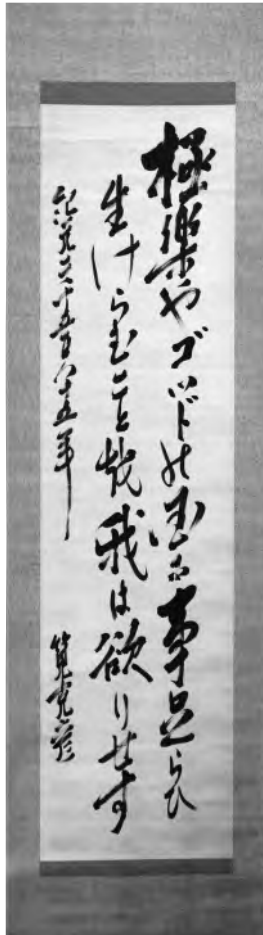 極樂やゴッドの國に事足らひ
生けらむこと哉我は欲りせす
紀元二千五百八十五年
筧克彦